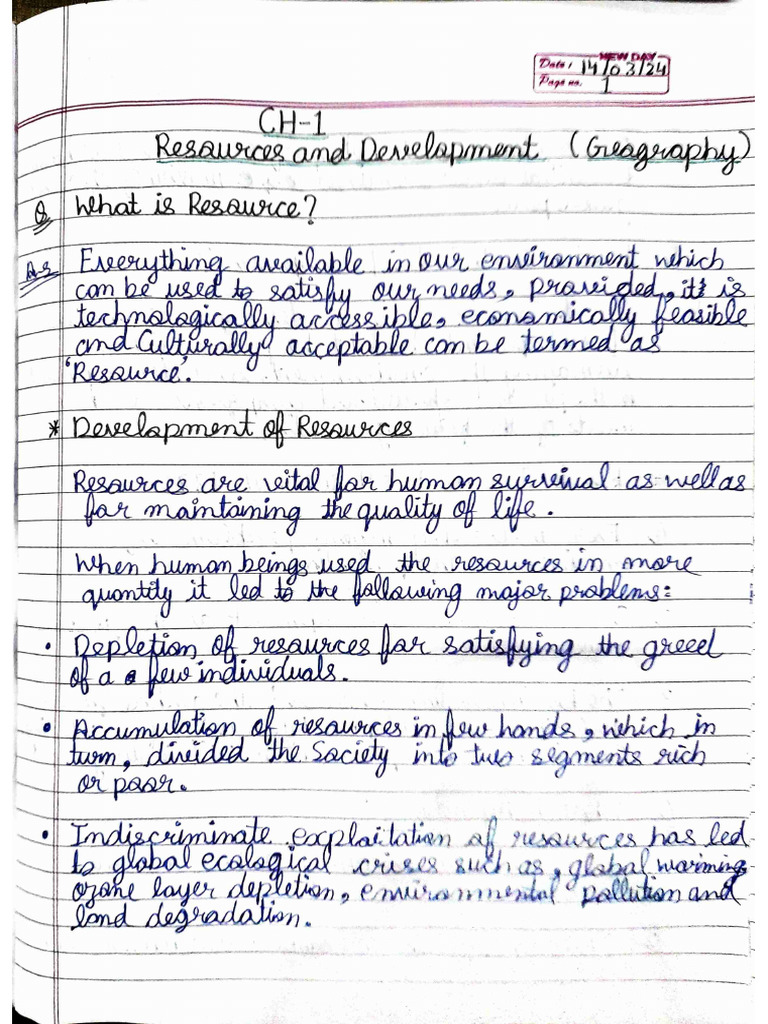 NEW DAY
Date: 14/03/24
Page no. 1
CH-1
Resources and Development (Geography)
Q What is Resource?
Ans Everything available in our environment which
can be used to satisfy our needs, provided, it is
technologically accessible, economically feasible
and Culturally acceptable can be termed as
'Resource'.
* Development of Resources
Resources are vital for human survival as well as
for maintaining the quality of life.
When human beings used the resources in more
quantity it led to the following major problems:
• Depletion of resources for satisfying the greed
of a few individuals.
• Accumulation of resources in few hands, which in
turn, divided the Society into two segments rich
or poor.
• Indiscriminate exploitation of resources has led
to global ecological crises such as, global warming,
ozone layer depletion, environmental pollution and
land degradation.